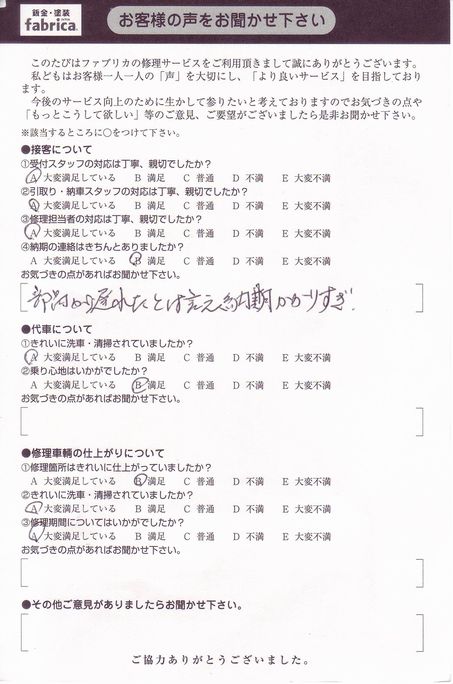 鈑金・塗装
fabrica.
お客様の声をお聞かせ下さい
このたびはファブリカの修理サービスをご利用頂きまして誠にありがとうございます。
私どもはお客様一人一人の「声」を大切にし、「より良いサービス」を目指しており
ます。
今後のサービス向上のために生かして参りたいと考えておりますのでお気づきの点や
「もっとこうして欲しい」等のご意見、ご要望がございましたら是非お聞かせ下さい。
※該当するところに○をつけて下さい。
●接客について
①受付スタッフの対応は丁寧、親切でしたか？
A 大変満足している B 満足 C 普通 D 不満 E 大変不満
②引取り・納車スタッフの対応は丁寧、親切でしたか？
A 大変満足している B 満足 C 普通 D 不満 E 大変不満
③修理担当者の対応は丁寧、親切でしたか？
A 大変満足している B 満足 C 普通 D 不満 E 大変不満
④納期の連絡はきちんとありましたか？
A 大変満足している B 満足 C 普通 D 不満 E 大変不満
お気づきの点があればお聞かせ下さい。
部品が遅れたとは言え納期かかりすぎ!
●代車について
①きれいに洗車・清掃されていましたか？
A 大変満足している B 満足 C 普通 D 不満 E 大変不満
②乗り心地はいかがでしたか？
A 大変満足している B 満足 C 普通 D 不満 E 大変不満
お気づきの点があればお聞かせ下さい。
●修理車輌の仕上がりについて
①修理箇所はきれいに仕上がっていましたか？
A 大変満足している B 満足 C 普通 D 不満 E 大変不満
②きれいに洗車・清掃されていましたか？
A 大変満足している B 満足 C 普通 D 不満 E 大変不満
③修理期間についてはいかがでしたか？
A 大変満足している B 満足 C 普通 D 不満 E 大変不満
お気づきの点があればお聞かせ下さい。
●その他ご意見がありましたらお聞かせ下さい。
ご協力ありがとうございました。